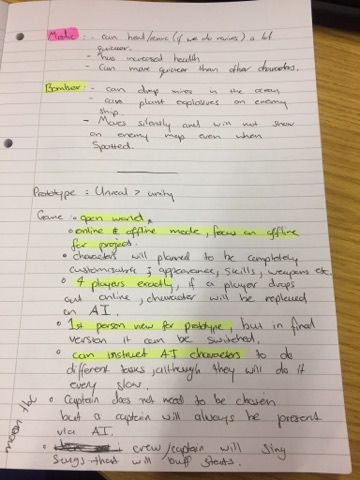 Medic: - can heal/revive (if we do revives) a lot
quicker.
- has increased health
- Can move quicker than other characters.
Bomber: - can drop mines in the ocean
- can plant explosives on enemy
ship.
- Moves silently and will not show
on enemy map even when
Spotted.
Prototype = Unreal > unity
Game: - open world,
• online & offline mode, focus on offline
for project.
• characters will planned to be completely
customisable; appearance, skills, weapons etc
• 4 players exactly, if a player drops
out online, character will be replaced
an AI.
• 1st person view for prototype, but in final
version it can be switched.
• can instruct AI characters to do
different tasks, although they will do it
very slow.
• Captain does not need to be chosen
but a captain will always be present
via AI.
• crew/captain will sing
songs that will buff stats.